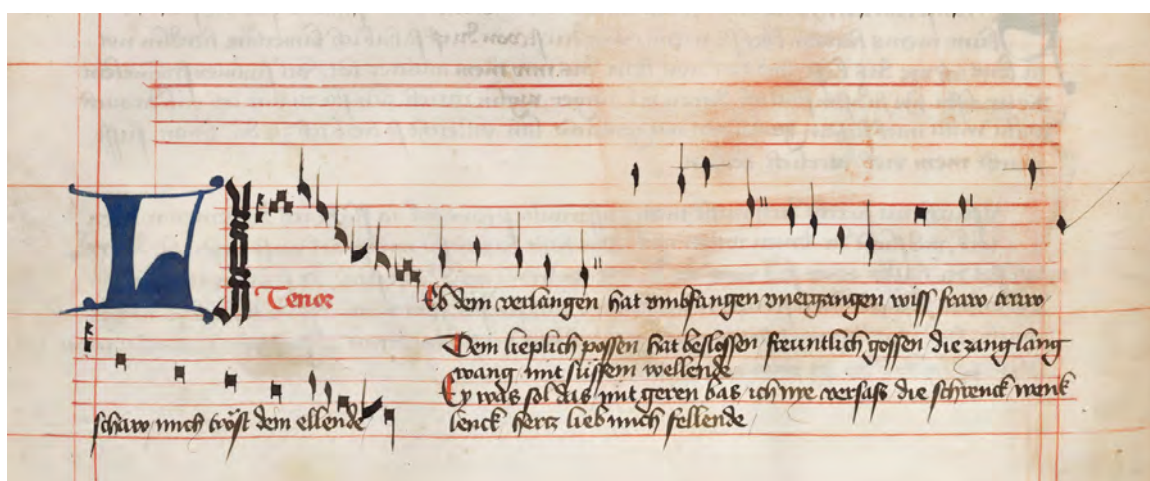 LI
Tenor
eb dein verlangen / hat vmbfangen vnergangen wiss fraw / traw /
Dein lieplich possen hat beslossen freuntlich gossen / die zung lang
wang mit süssem wellende
Ey was sol das mit geren bas ich me versass die schrenck wenk
schaw / mich tröst dein ellende /
lenck hertz lieb mich fellende /